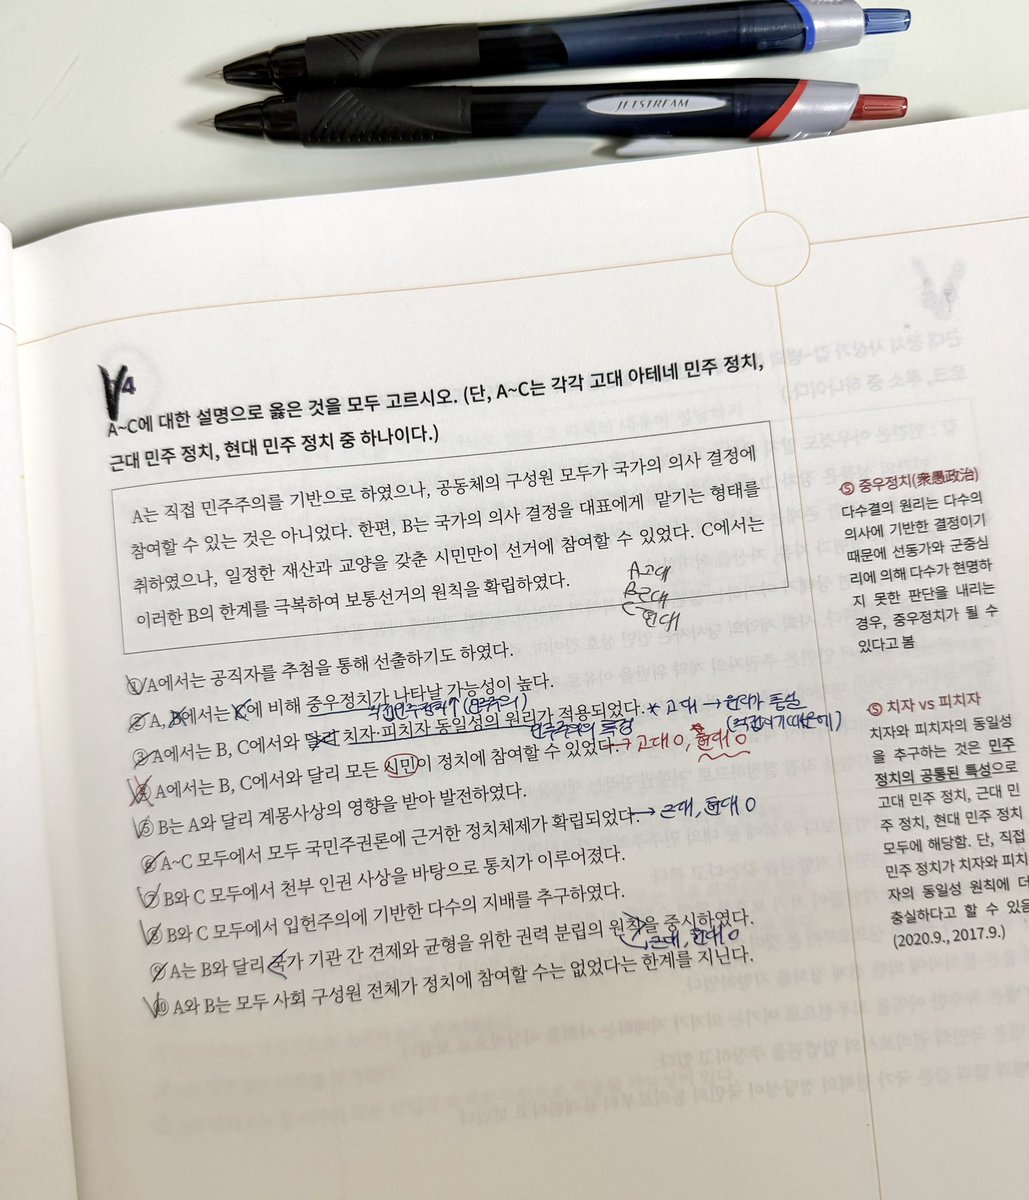 JETSTREAM
4
A~C에 대한 설명으로 옳은 것을 모두 고르시오. (단, A~C는 각각 고대 아테네 민주 정치,
근대 민주 정치, 현대 민주 정치 중 하나이다.)
A는 직접 민주주의를 기반으로 하였으나, 공동체의 구성원 모두가 국가의 의사 결정에
참여할 수 있는 것은 아니었다. 한편, B는 국가의 의사 결정을 대표에게 맡기는 형태를
취하였으나, 일정한 재산과 교양을 갖춘 시민만이 선거에 참여할 수 있었다. C에서는
이러한 B의 한계를 극복하여 보통선거의 원칙을 확립하였다.
A 고대
B 근대
C 현대
① A에서는 공직자를 추첨을 통해 선출하기도 하였다.
② A, B에서는 C에 비해 중우정치가 나타날 가능성이 높다.
직접민주정치↑ (민주주의)
③ A에서는 B, C에서와 달리 치자·피치자 동일성의 원리가 적용되었다. * 고대 → 원리가 충실
민주주의의 특징 (직접이기 때문에)
④ A에서는 B, C에서와 달리 모든 시민이 정치에 참여할 수 있었다. → 고대 O, 현대 O
⑤ B는 A와 달리 계몽사상의 영향을 받아 발전하였다.
⑥ A~C 모두에서 모두 국민주권론에 근거한 정치체제가 확립되었다. → 근대, 현대 O
⑦ B와 C 모두에서 천부 인권 사상을 바탕으로 통치가 이루어졌다.
⑧ B와 C 모두에서 입헌주의에 기반한 다수의 지배를 추구하였다.
⑨ A는 B와 달리 국가 기관 간 견제와 균형을 위한 권력 분립의 원칙을 중시하였다.
근대, 현대 O
⑩ A와 B는 모두 사회 구성원 전체가 정치에 참여할 수는 없었다는 한계를 지닌다.
⑤ 중우정치(衆愚政治)
다수결의 원리는 다수의
의사에 기반한 결정이기
때문에 선동가와 군중심
리에 의해 다수가 현명하
지 못한 판단을 내리는
경우, 중우정치가 될 수
있다고 봄
⑤ 치자 vs 피치자
치자와 피치자의 동일성
을 추구하는 것은 민주
정치의 공통된 특성으로
고대 민주 정치, 근대 민
주 정치, 현대 민주 정치
모두에 해당함. 단, 직접
민주 정치가 치자와 피치
자의 동일성 원칙에 더
충실하다고 할 수 있음
(2020.9., 2017.9.)